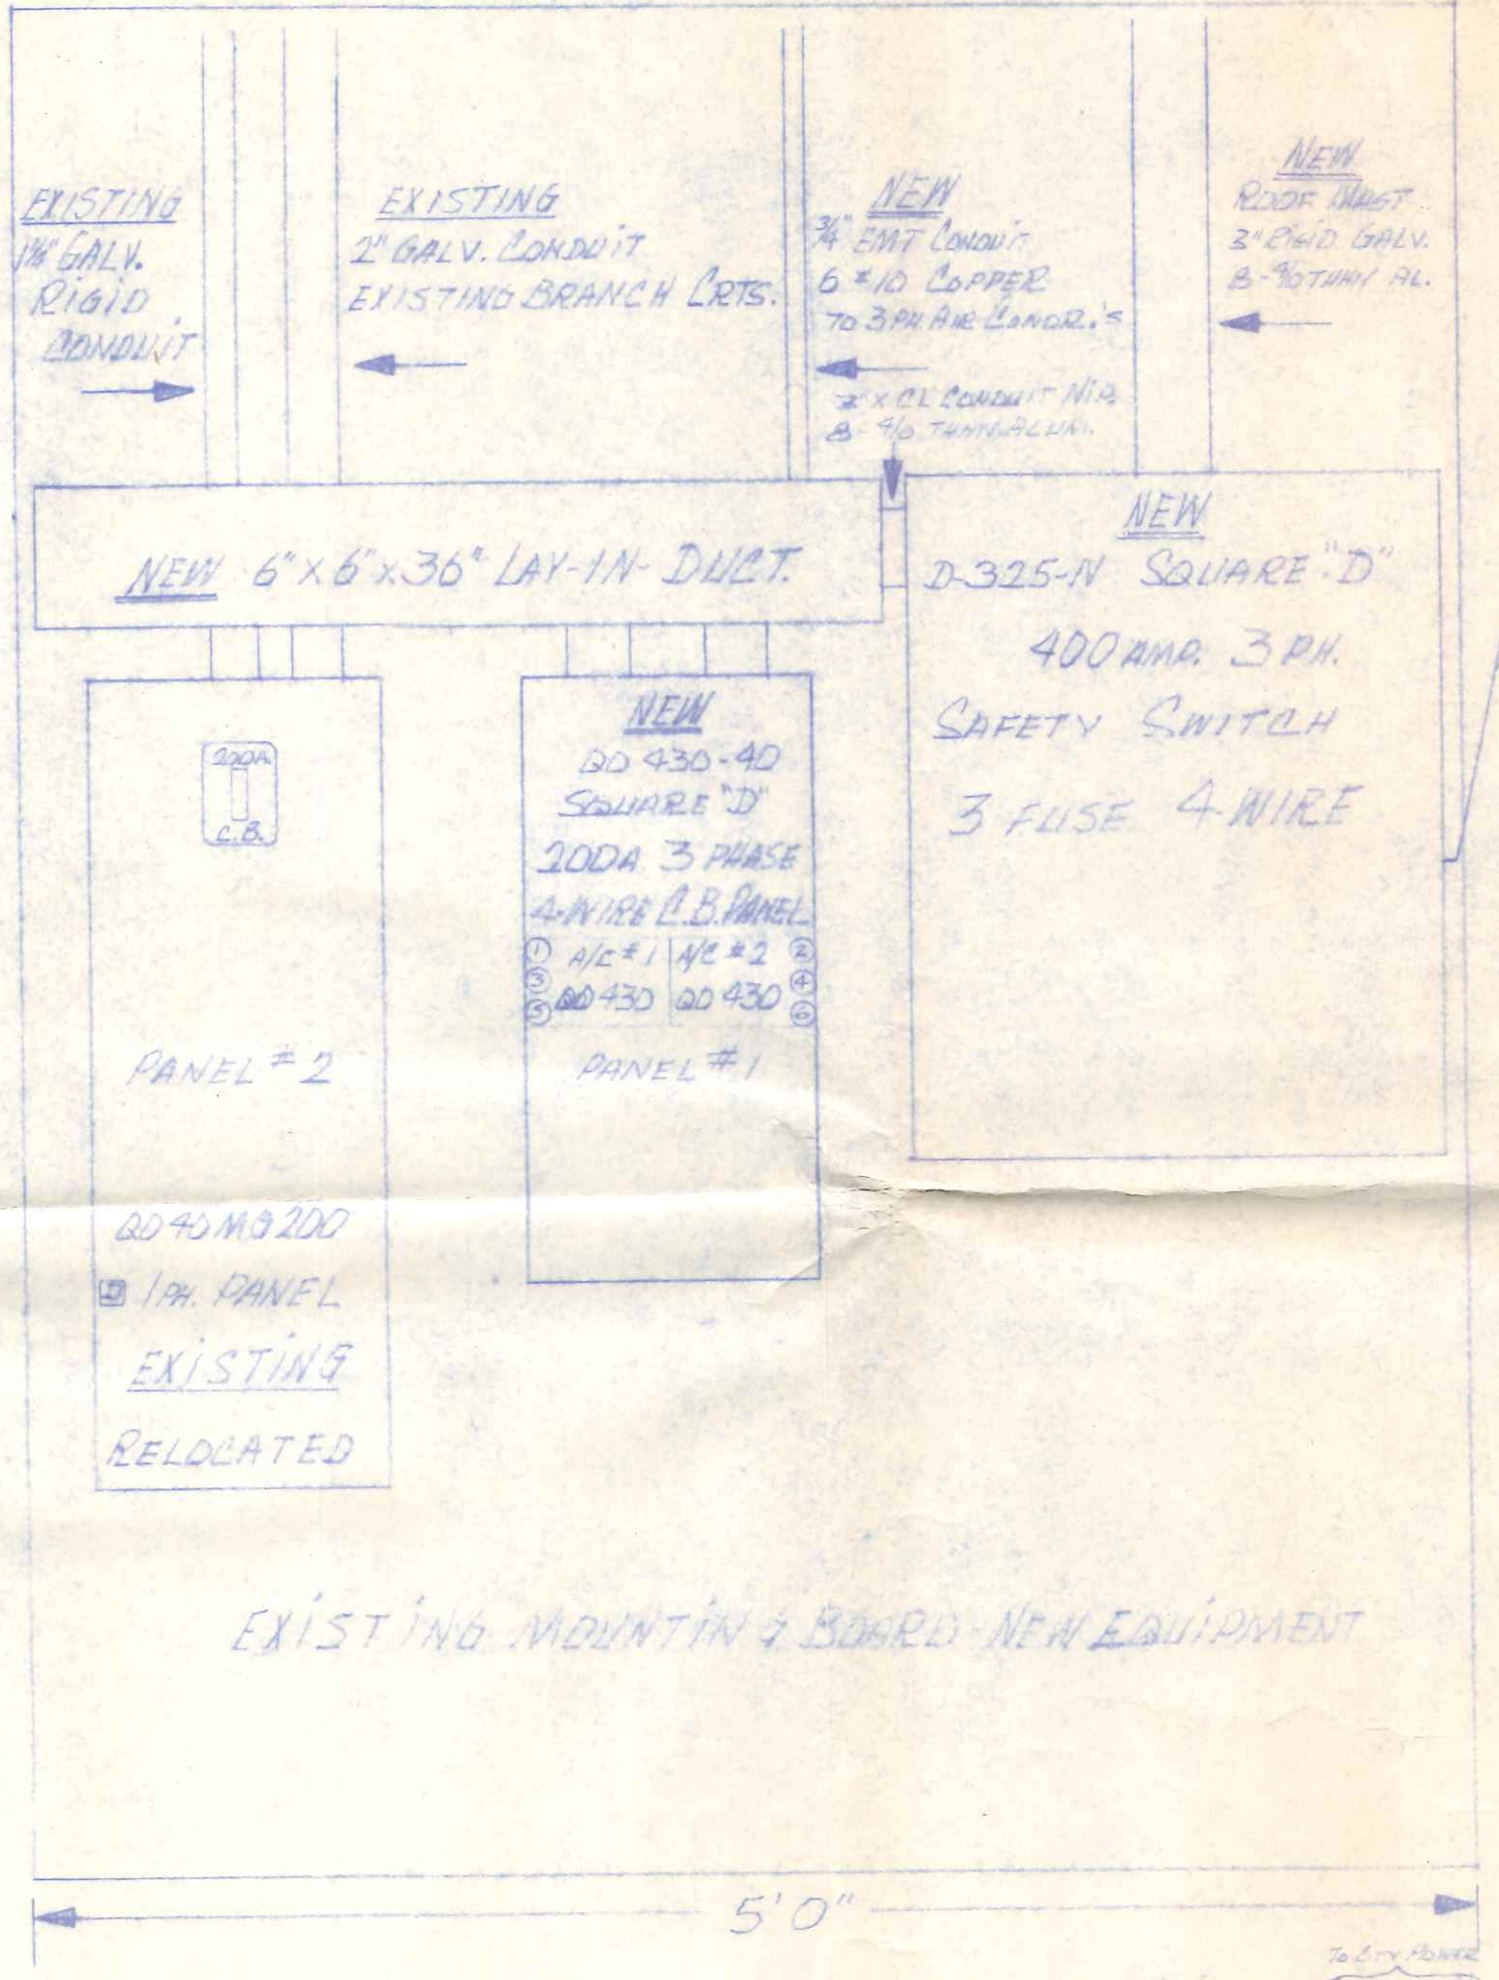 EXISTING
1¼" GALV.
RIGID
CONDUIT
EXISTING
2" GALV. CONDUIT
EXISTING BRANCH CRTS.
NEW
¾" EMT CONDUIT
6 #10 COPPER
TO 3 PH. AIR CONDR.'S
CL CONDUIT NIP.
8-4/0 THHN ALUM.
NEW
ROOF MAST
3" RIGID GALV.
8-4/0 THHN AL.
NEW 6"x6"x36" LAY-IN-DUCT.
NEW
D-325-N SQUARE "D"
400 AMP. 3 PH.
SAFETY SWITCH
3 FUSE 4-WIRE
200A
C.B.
PANEL #2
QO40MQ200
1 PH. PANEL
EXISTING
RELOCATED
NEW
QO 430-40
SQUARE "D"
200A 3 PHASE
4-WIRE C.B. PANEL
1 A/C #1 A/C #2 2
3 QO 430 QO 430 4
5 6
PANEL #1
EXISTING MOUNTING BOARD-NEW EQUIPMENT
5'0"
TO CITY POWER